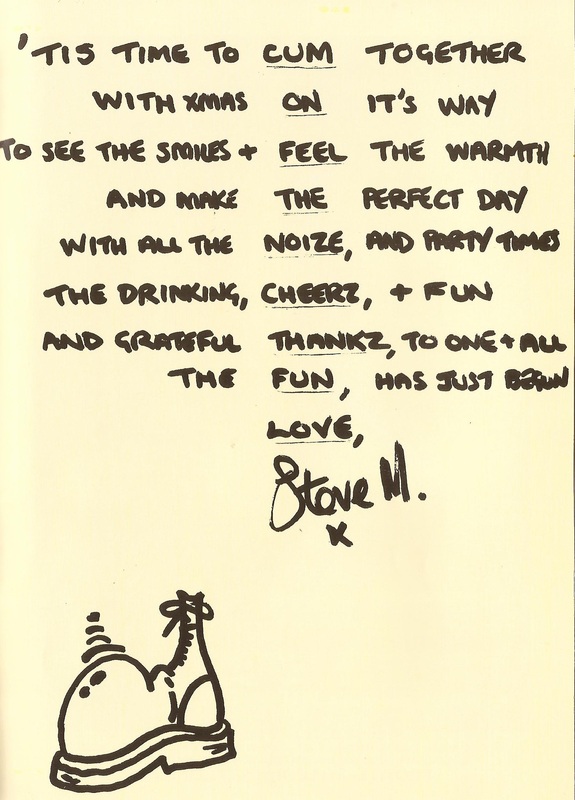 'TIS TIME TO CUM TOGETHER
WITH XMAS ON IT'S WAY
TO SEE THE SMILES + FEEL THE WARMTH
AND MAKE THE PERFECT DAY
WITH ALL THE NOIZE, AND PARTY TIMES
THE DRINKING, CHEERZ, + FUN
AND GRATEFUL THANKZ, TO ONE + ALL
THE FUN, HAS JUST BEGUN
LOVE,
Steve M.
X